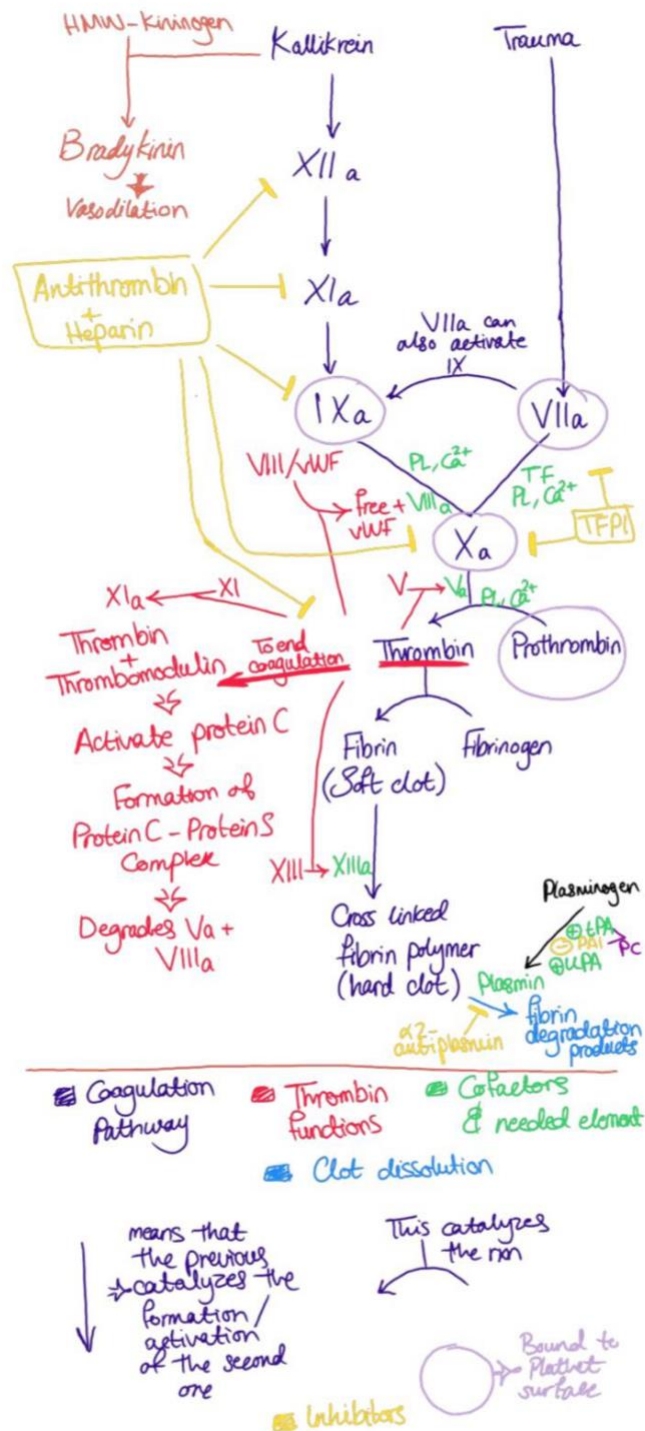 HMW-Kininogen
Kallikrein
Trauma
Bradykinin
Vasodilation
XII a
Antithrombin
+
Heparin
XIa
VIIa can
also activate
IX
IXa
VIIa
VIII/vWF
PL, Ca2+
TF
PL, Ca2+
free +
vWF
VIIIa
TFPI
Xa
XIa
XI
V
Va
PL, Ca2+
Thrombin
+
Thrombomodulin
To end
coagulation
Thrombin
Prothrombin
Activate protein C
Fibrin
(Soft clot)
Fibrinogen
Formation of
Protein C - Protein S
Complex
XIII
XIIIa
Degrades Va +
VIIIa
Cross linked
fibrin polymer
(hard clot)
Plasminogen
⊕ tPA
⊖ PAI
Pc
⊕ uPA
Plasmin
α2-
antiplasmin
fibrin
degradation
products
Coagulation
Pathway
Thrombin
functions
Cofactors
& needed element
Clot dissolution
means that
the previous
catalyzes the
formation/
activation
of the second
one
This catalyzes
the rxn
Bound to
Platelet
surface
Inhibitors